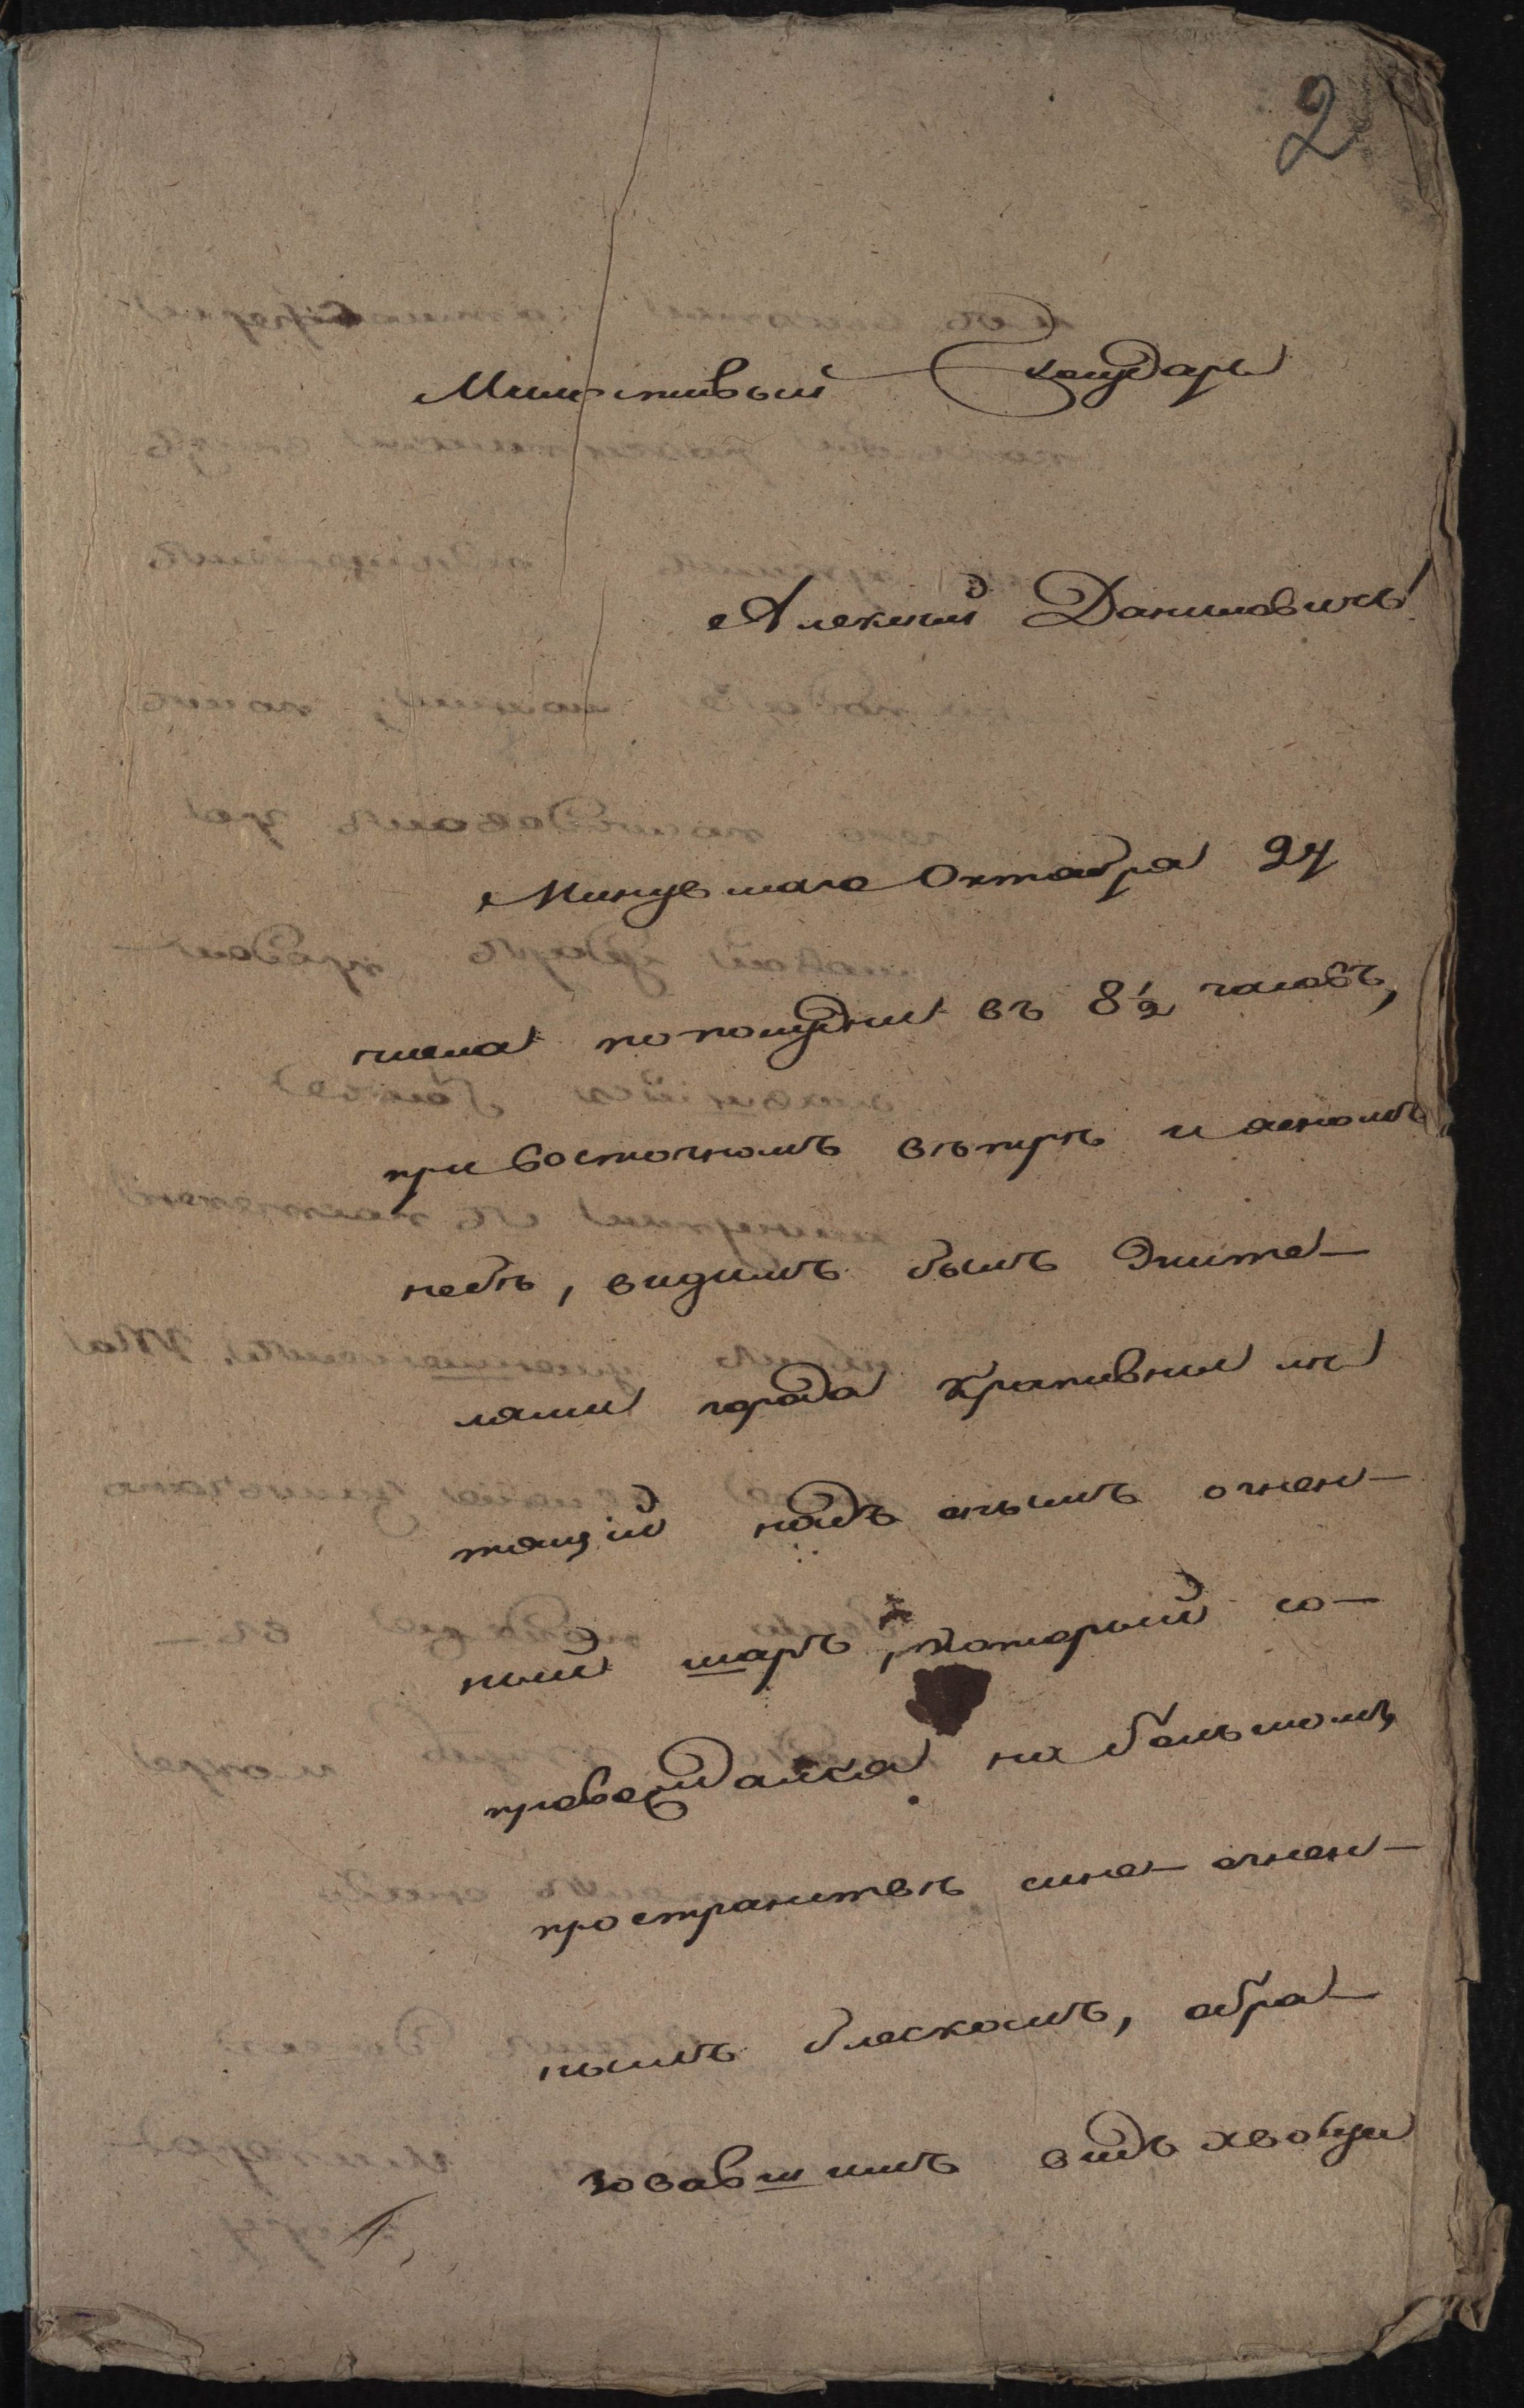 2
Милостивый Государь
Алексей Даниловичь!
Минувшаго Октября 24
числа по полудни въ 8½ часовъ,
при восточномъ ветре и ясномъ
небѣ, видимъ былъ жите-
лями города Крапивны ле
тящій надъ онымъ огнен-
ный шаръ, который со-
провождался на большомъ
пространстве сине-огнен-
нымъ блескомъ, обра-
зовавшимъ видъ хвоста